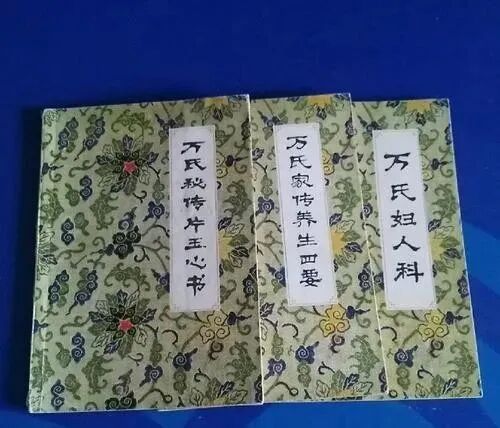 万氏秘传片玉心书
万氏家传养生四要
万氏妇人科